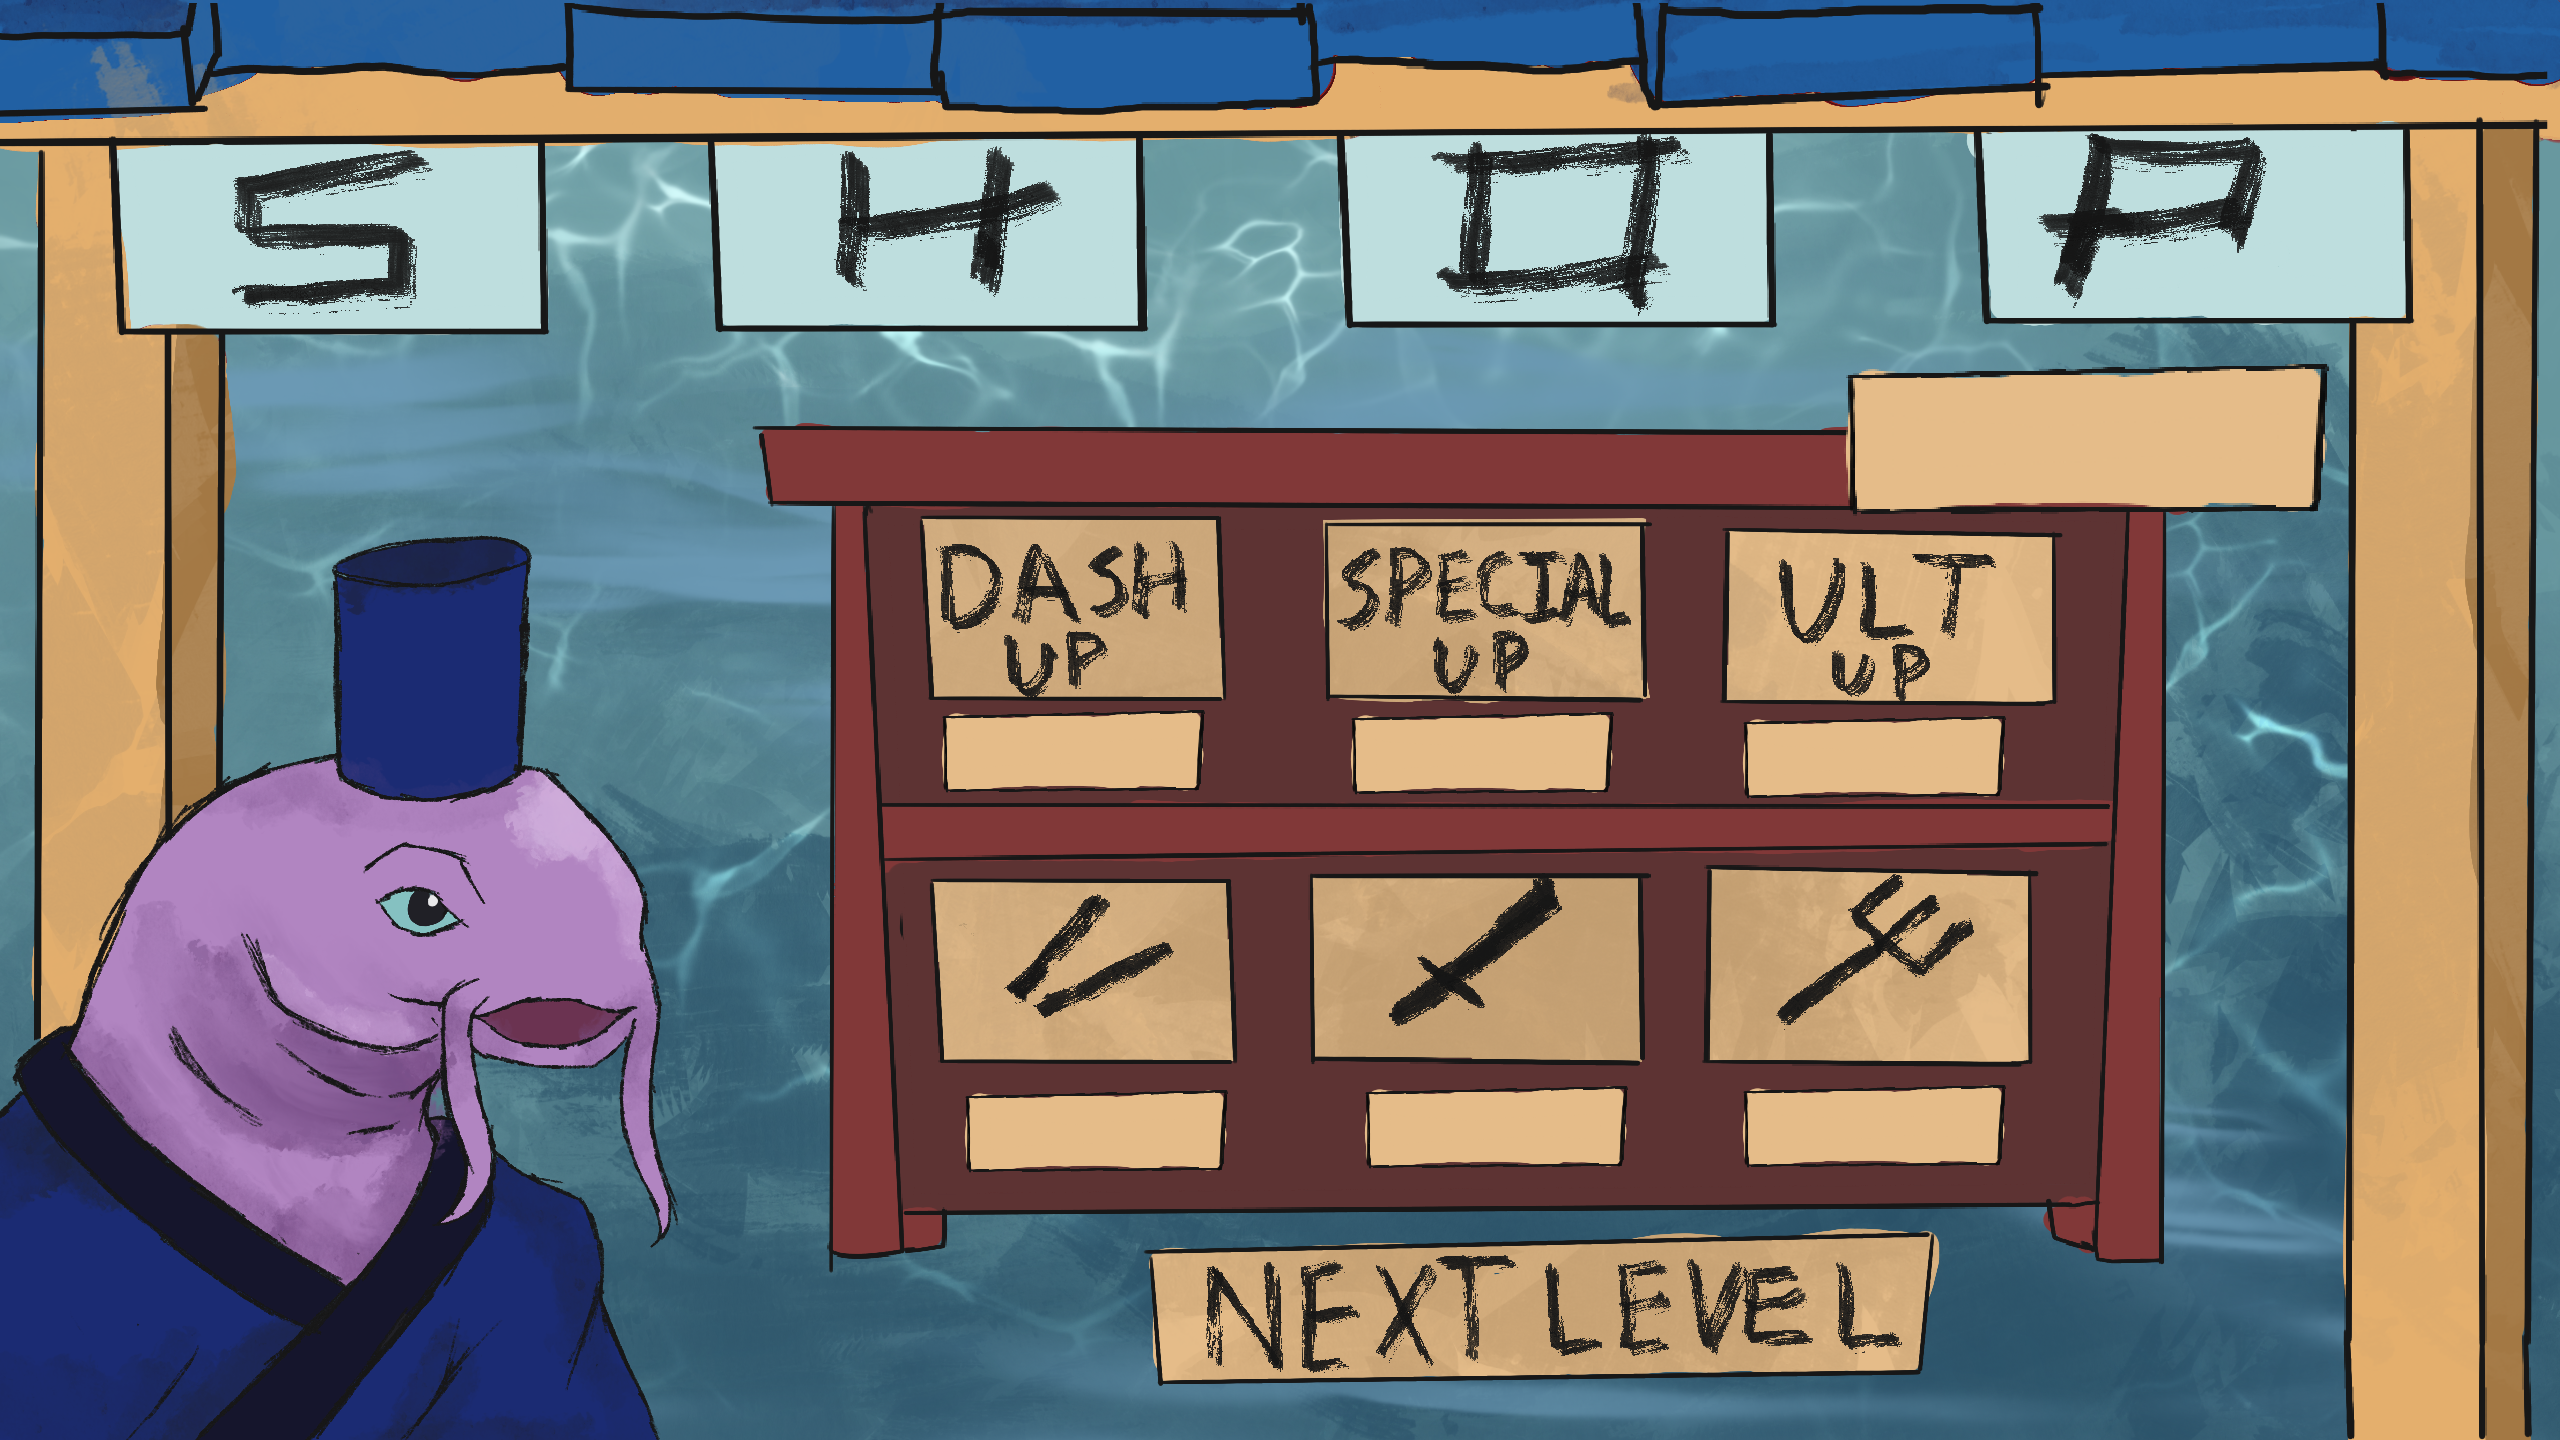 SHOP
DASH
UP
SPECIAL
UP
ULT
UP
NEXT LEVEL